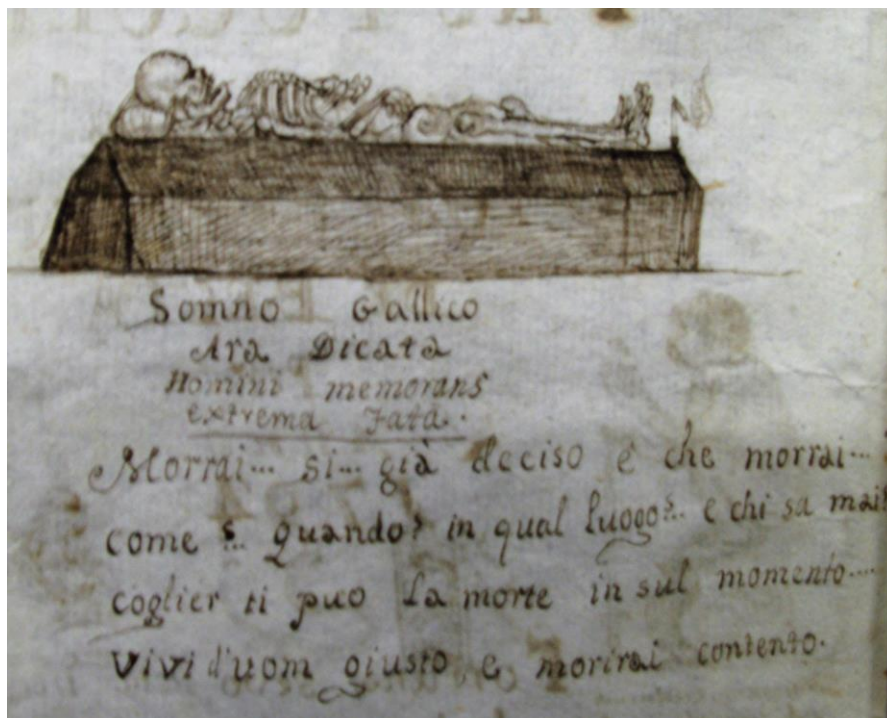 Somno Gallico
Ara Dicata
Homini memorans
extrema Fata.
Morrai... si... già deciso è che morrai...
come?... quando? in qual luogo?.. e chi sa mai!
coglier ti puo la morte in sul momento....
Vivi d'uom giusto, e morirai contento.